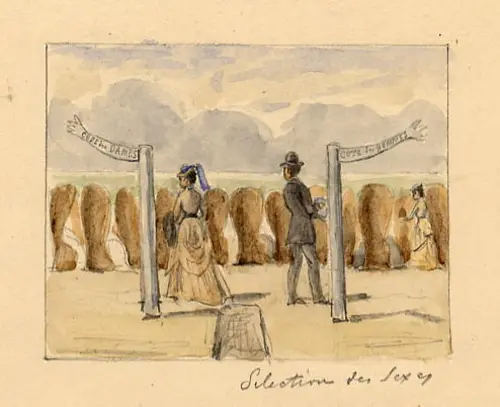 COTÉ des DAMES
COTÉ des HOMMES
Sélection des Sexes